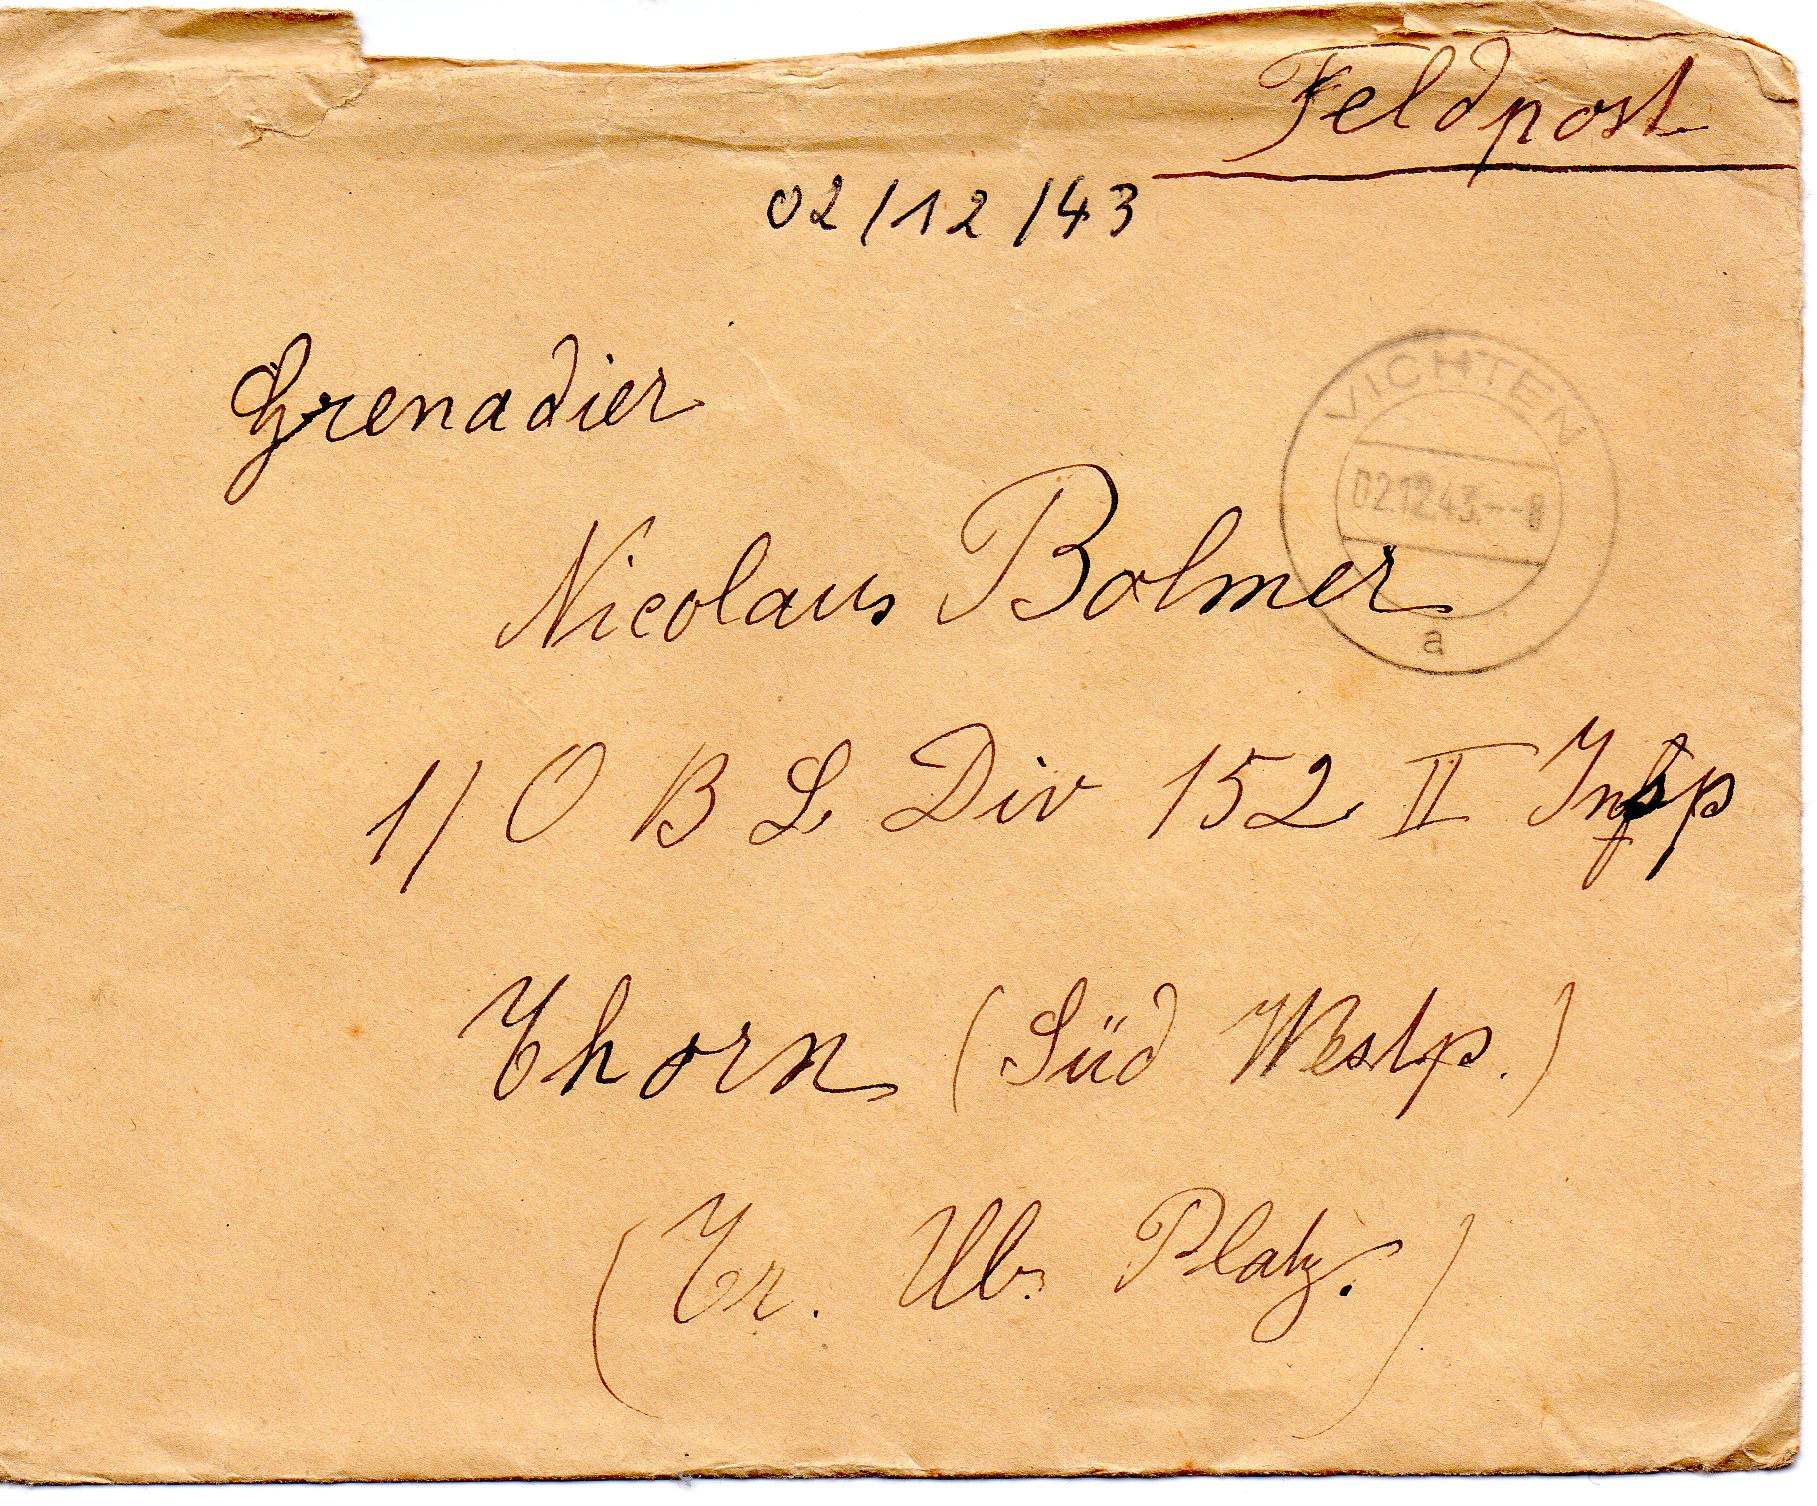 Feldpost
02/12/43
Grenadier
VICHTEN
02.12.43.--8
a
Nicolaus Bolmer
1/ O B L Div 152 II Insp
Thorn (Süd Westp.)
(Tr. Üb. Platz.)